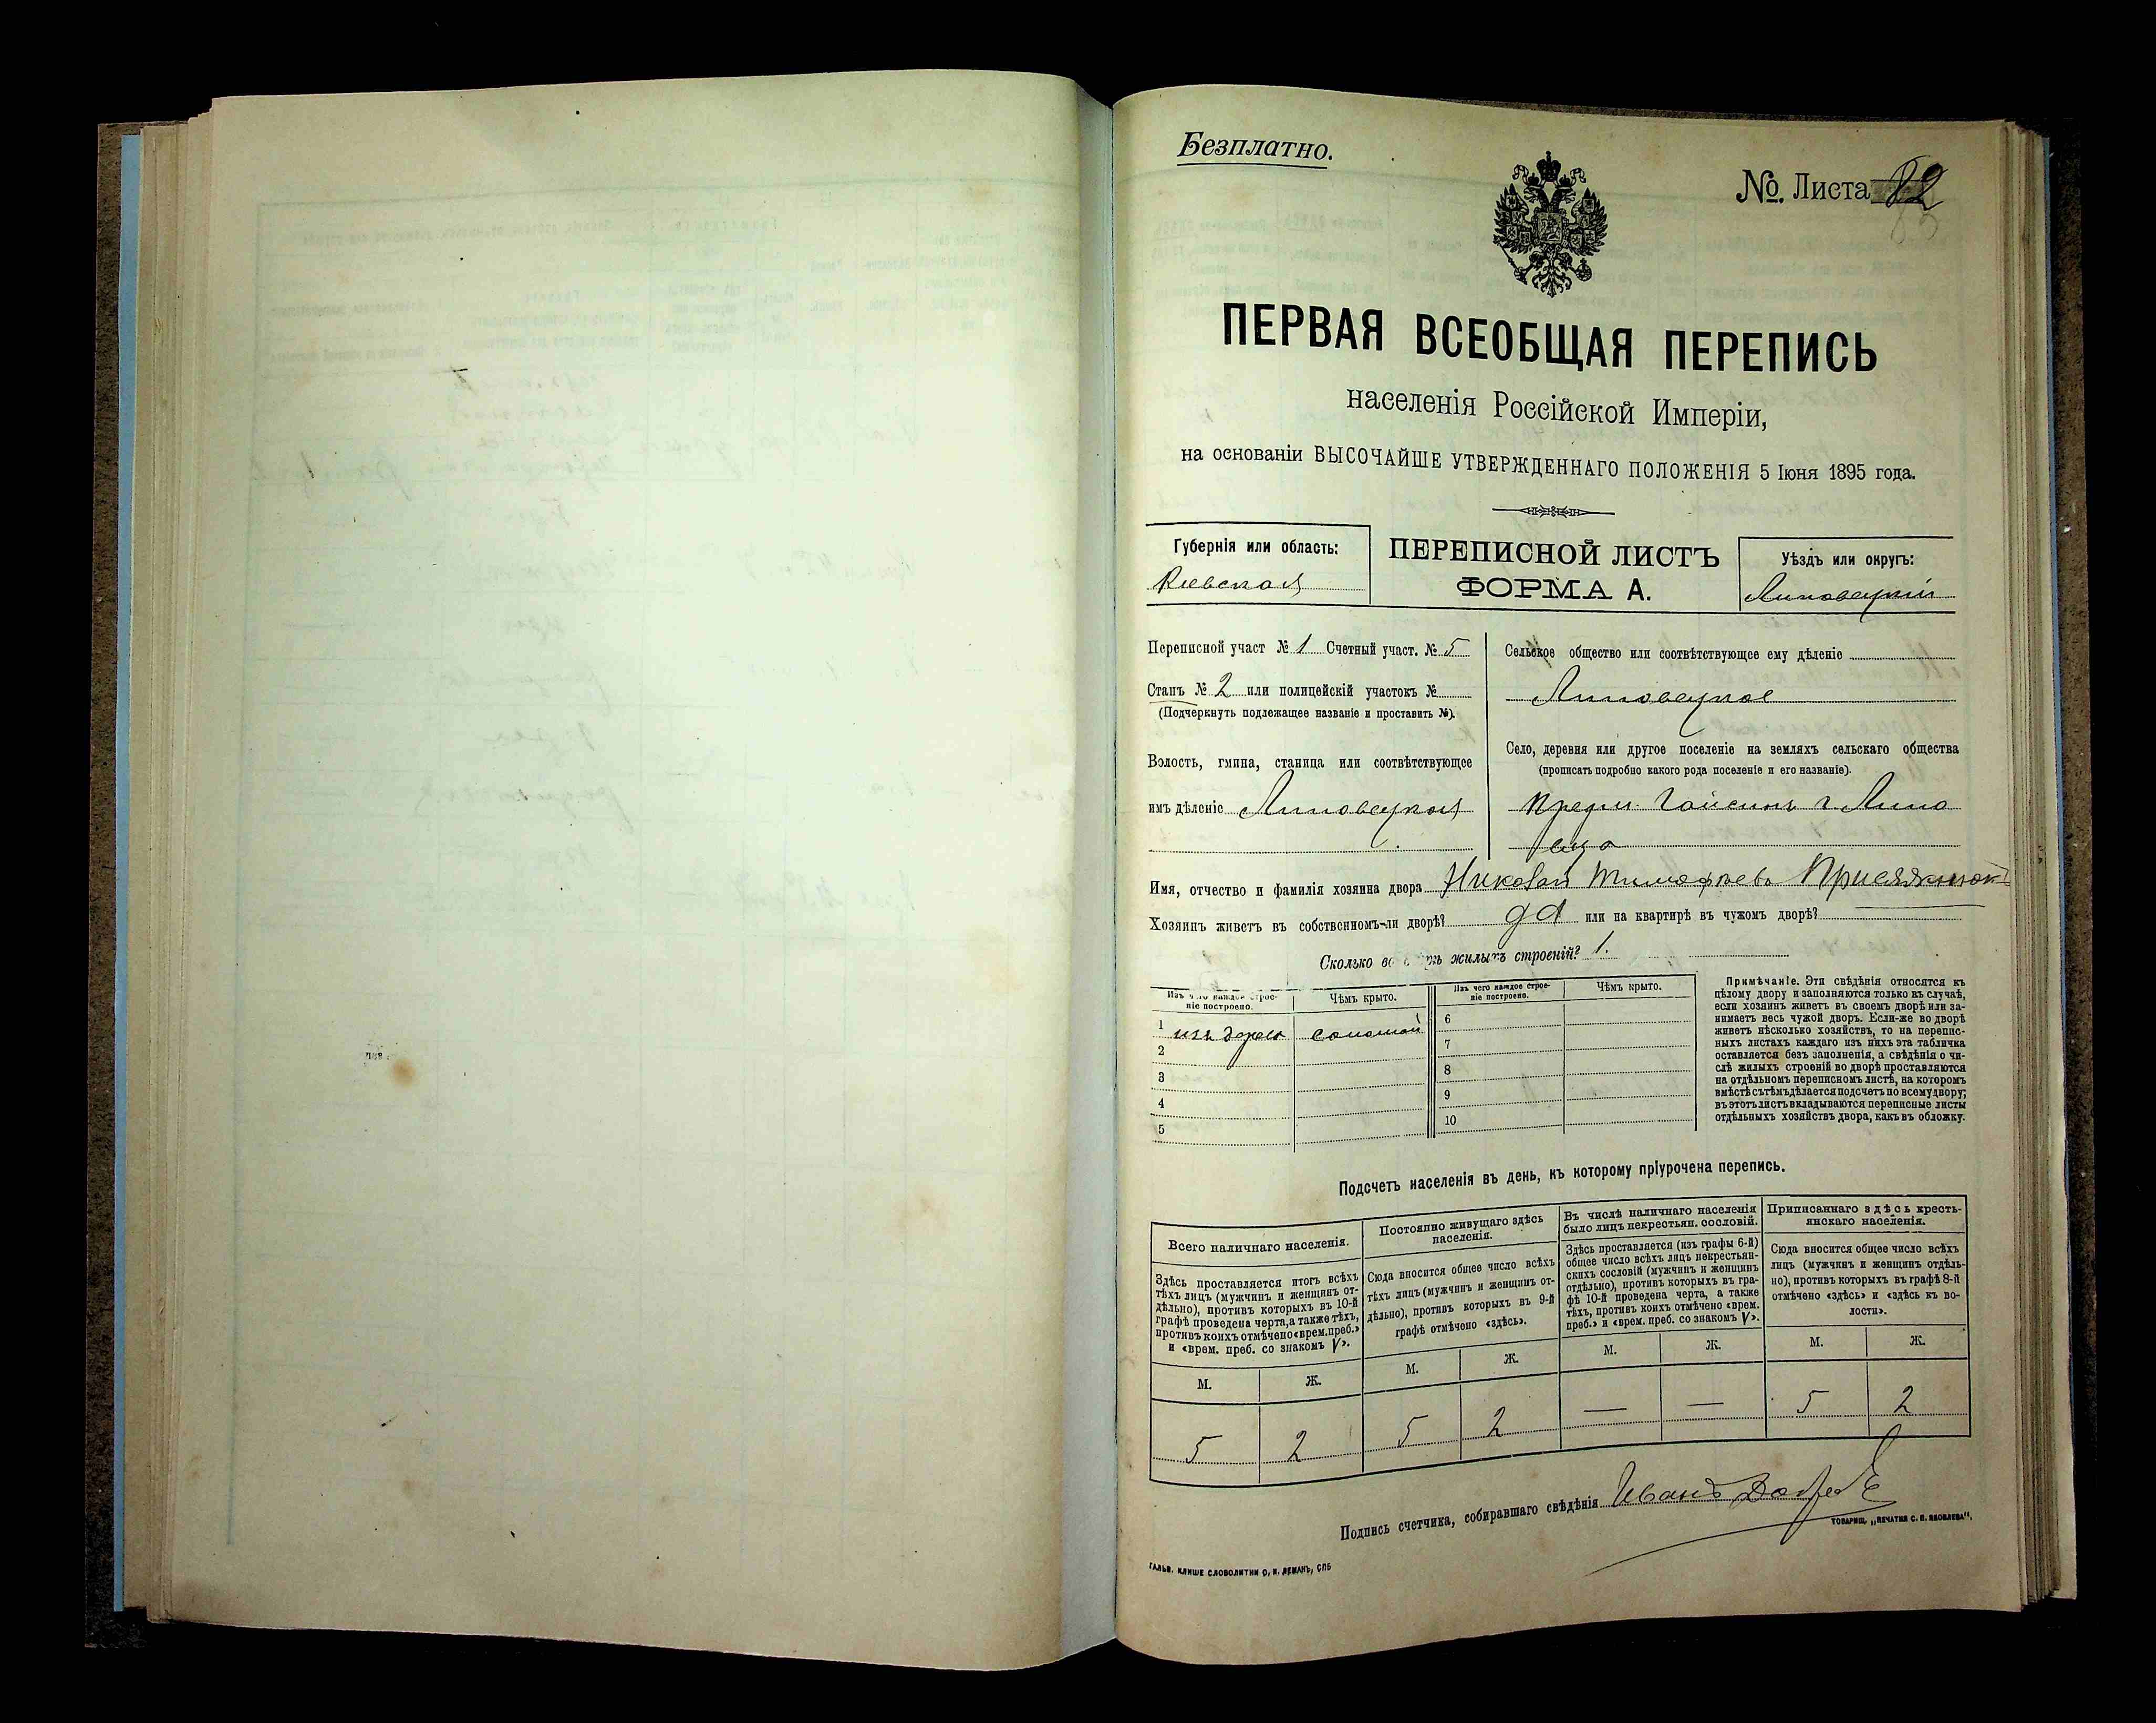 Безплатно.
№ Листа 82
ПЕРВАЯ ВСЕОБЩАЯ ПЕРЕПИСЬ
населенія Россійской Имперіи,
на основаніи ВЫСОЧАЙШЕ УТВЕРЖДЕННАГО ПОЛОЖЕНІЯ 5 Іюня 1895 года.
Губернія или область:
Кіевская
ПЕРЕПИСНОЙ ЛИСТЪ
ФОРМА А.
Уѣздъ или округъ:
Липовецкій
Переписной участ № 1 Счетный участ. № 5
Станъ № 2 или полицейскій участокъ №
(Подчеркнуть подлежащее названіе и проставить №).
Волость, гмина, станица или соотвѣтствующее
имъ дѣленіе Липовецкая
Сельское общество или соотвѣтствующее ему дѣленіе
Липовецкое
Село, деревня или другое поселеніе на земляхъ сельскаго общества
(прописать подробно какого рода поселеніе и его названіе).
Предм. Гайсинъ г. Липо
вца
Имя, отчество и фамилія хозяина двора Николай Тимофѣевъ Присяжнюкъ
Хозяинъ живетъ въ собственномъ-ли дворѣ? да или на квартирѣ въ чужомъ дворѣ?
Сколько во жилыхъ строеній? 1.
Изъ чего каждое строе-
ніе построено.
Чѣмъ крыто.
Изъ чего каждое строе-
ніе построено.
Чѣмъ крыто.
1 изъ дерева соломой
2
3
4
5
6
7
8
9
10
Примѣчаніе. Эти свѣдѣнія относятся къ
цѣлому двору и заполняются только въ случаѣ,
если хозяинъ живетъ въ своемъ дворѣ или за-
нимаетъ весь чужой дворъ. Если-же во дворѣ
живетъ нѣсколько хозяйствъ, то на перепис-
ныхъ листахъ каждаго изъ нихъ эта табличка
оставляется безъ заполненія, а свѣдѣнія о чи-
слѣ жилыхъ строеній во дворѣ проставляются
на отдѣльномъ переписномъ листѣ, на которомъ
вмѣстѣ съ тѣмъ дѣлается подсчетъ по всему двору;
въ этотъ листъ вкладываются переписные листы
отдѣльныхъ хозяйствъ двора, какъ въ обложку.
Подсчетъ населенія въ день, къ которому пріурочена перепись.
Всего наличнаго населенія.
Здѣсь проставляется итогъ всѣхъ
тѣхъ лицъ (мужчинъ и женщинъ от-
дѣльно), противъ которыхъ въ 10-й
графѣ проведена черта, а также тѣхъ,
противъ коихъ отмѣчено «врем. преб.»
и «врем. преб. со знакомъ V».
М. Ж.
5 2
Постоянно живущаго здѣсь
населенія.
Сюда вносится общее число всѣхъ
тѣхъ лицъ (мужчинъ и женщинъ от-
дѣльно), противъ которыхъ въ 9-й
графѣ отмѣчено «здѣсь».
М. Ж.
5 2
Въ числѣ наличнаго населенія
было лицъ некрестьян. сословій.
Здѣсь проставляется (изъ графы 6-й)
общее число всѣхъ лицъ некрестьян-
скихъ сословій (мужчинъ и женщинъ
отдѣльно), противъ которыхъ въ гра-
фѣ 10-й проведена черта, а также
тѣхъ, противъ коихъ отмѣчено «врем.
преб.» и «врем. преб. со знакомъ V».
М. Ж.
— —
Приписаннаго здѣсь кресть-
янскаго населенія.
Сюда вносится общее число всѣхъ
лицъ (мужчинъ и женщинъ отдѣль-
но), противъ которыхъ въ графѣ 8-й
отмѣчено «здѣсь» и «здѣсь къ во-
лости».
М. Ж.
5 2
Подпись счетчика, собиравшаго свѣдѣнія Иванъ
ТОВАРИЩ. „ПЕЧАТНЯ С. П. ЯКОВЛЕВА“.
ГАЛЬВ. КЛИШЕ СЛОВОЛИТНИ О. И. ЛЕМАНЪ, СПБ